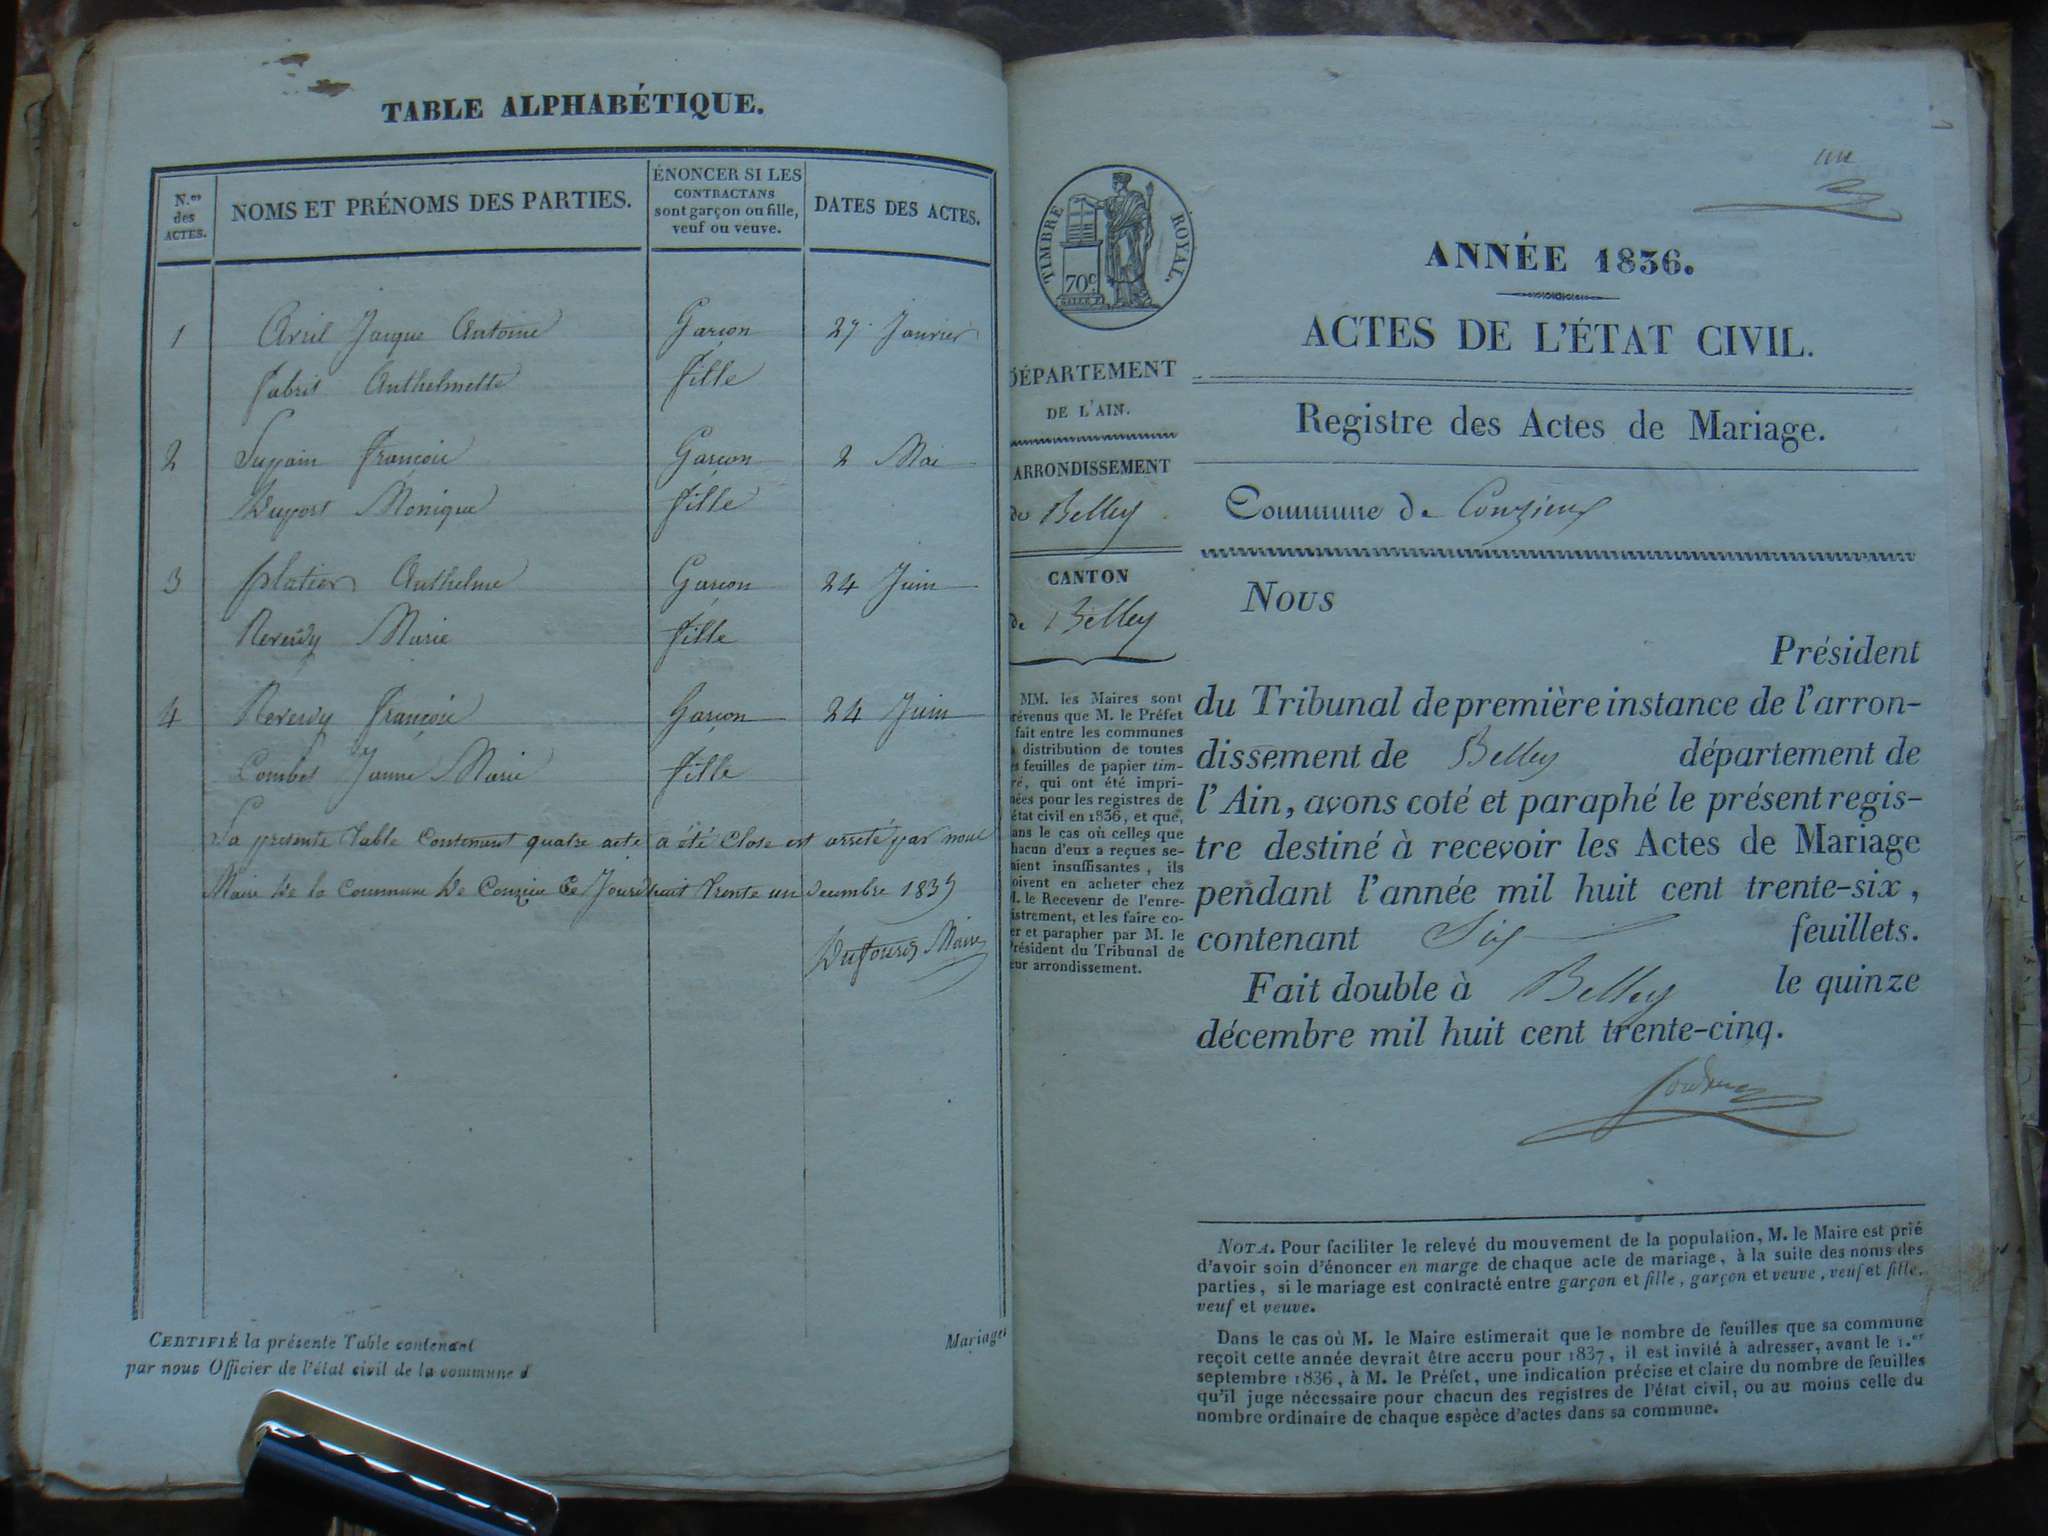 TABLE ALPHABÉTIQUE.
N.os des ACTES.
NOMS ET PRÉNOMS DES PARTIES.
ÉNONCER SI LES
CONTRACTANS
sont garçon ou fille,
veuf ou veuve.
DATES DES ACTES.
1 Avril Jacque Antoine Garcon 27 Janvier
Anthelmette fille
2 François Garcon 2 Mai
Duport Monique fille
3 platier Anthelme Garcon 24 Juin
Reverdy Marie fille
4 Reverdy françois Garcon 24 Juin
Combet Janne Marie fille
La presente Table Contenant quatre acte a été Close et arreté par nous
Maire de la Commune de Conzieu Ce Jourdhuit trente un decembre 1835
Dufour Maire
CERTIFIÉ la présente Table contenant
par nous Officier de l'état civil de la commune d
Mariages
TIMBRE ROYAL.
70c.
DÉPARTEMENT
DE L'AIN.
ARRONDISSEMENT
de Belley
CANTON
de Belley
MM. les Maires sont
prévenus que M. le Préfet
fait entre les communes
distribution de toutes
feuilles de papier tim-
bré, qui ont été impri-
mées pour les registres de
état civil en 1836, et que,
dans le cas où celles que
chacun d'eux a reçues se-
raient insuffisantes, ils
doivent en acheter chez
M. le Receveur de l'enre-
gistrement, et les faire co-
ter et parapher par M. le
Président du Tribunal de
leur arrondissement.
ANNÉE 1836.
ACTES DE L'ÉTAT CIVIL.
Registre des Actes de Mariage.
Commune de Conzieux
NOUS
Président
du Tribunal de première instance de l'arron-
dissement de Belley département de
l'Ain, avons coté et paraphé le présent regis-
tre destiné à recevoir les Actes de Mariage
pendant l'année mil huit cent trente-six,
contenant Six feuillets.
Fait double à Belley le quinze
décembre mil huit cent trente-cinq.
NOTA. Pour faciliter le relevé du mouvement de la population, M. le Maire est prié
d'avoir soin d'énoncer en marge de chaque acte de mariage, à la suite des noms des
parties, si le mariage est contracté entre garçon et fille, garçon et veuve, veuf et fille,
veuf et veuve.
Dans le cas où M. le Maire estimerait que le nombre de feuilles que sa commune
reçoit cette année devrait être accru pour 1837, il est invité à adresser, avant le 1.er
septembre 1836, à M. le Préfet, une indication précise et claire du nombre de feuilles
qu'il juge nécessaire pour chacun des registres de l'état civil, ou au moins celle du
nombre ordinaire de chaque espèce d'actes dans sa commune.